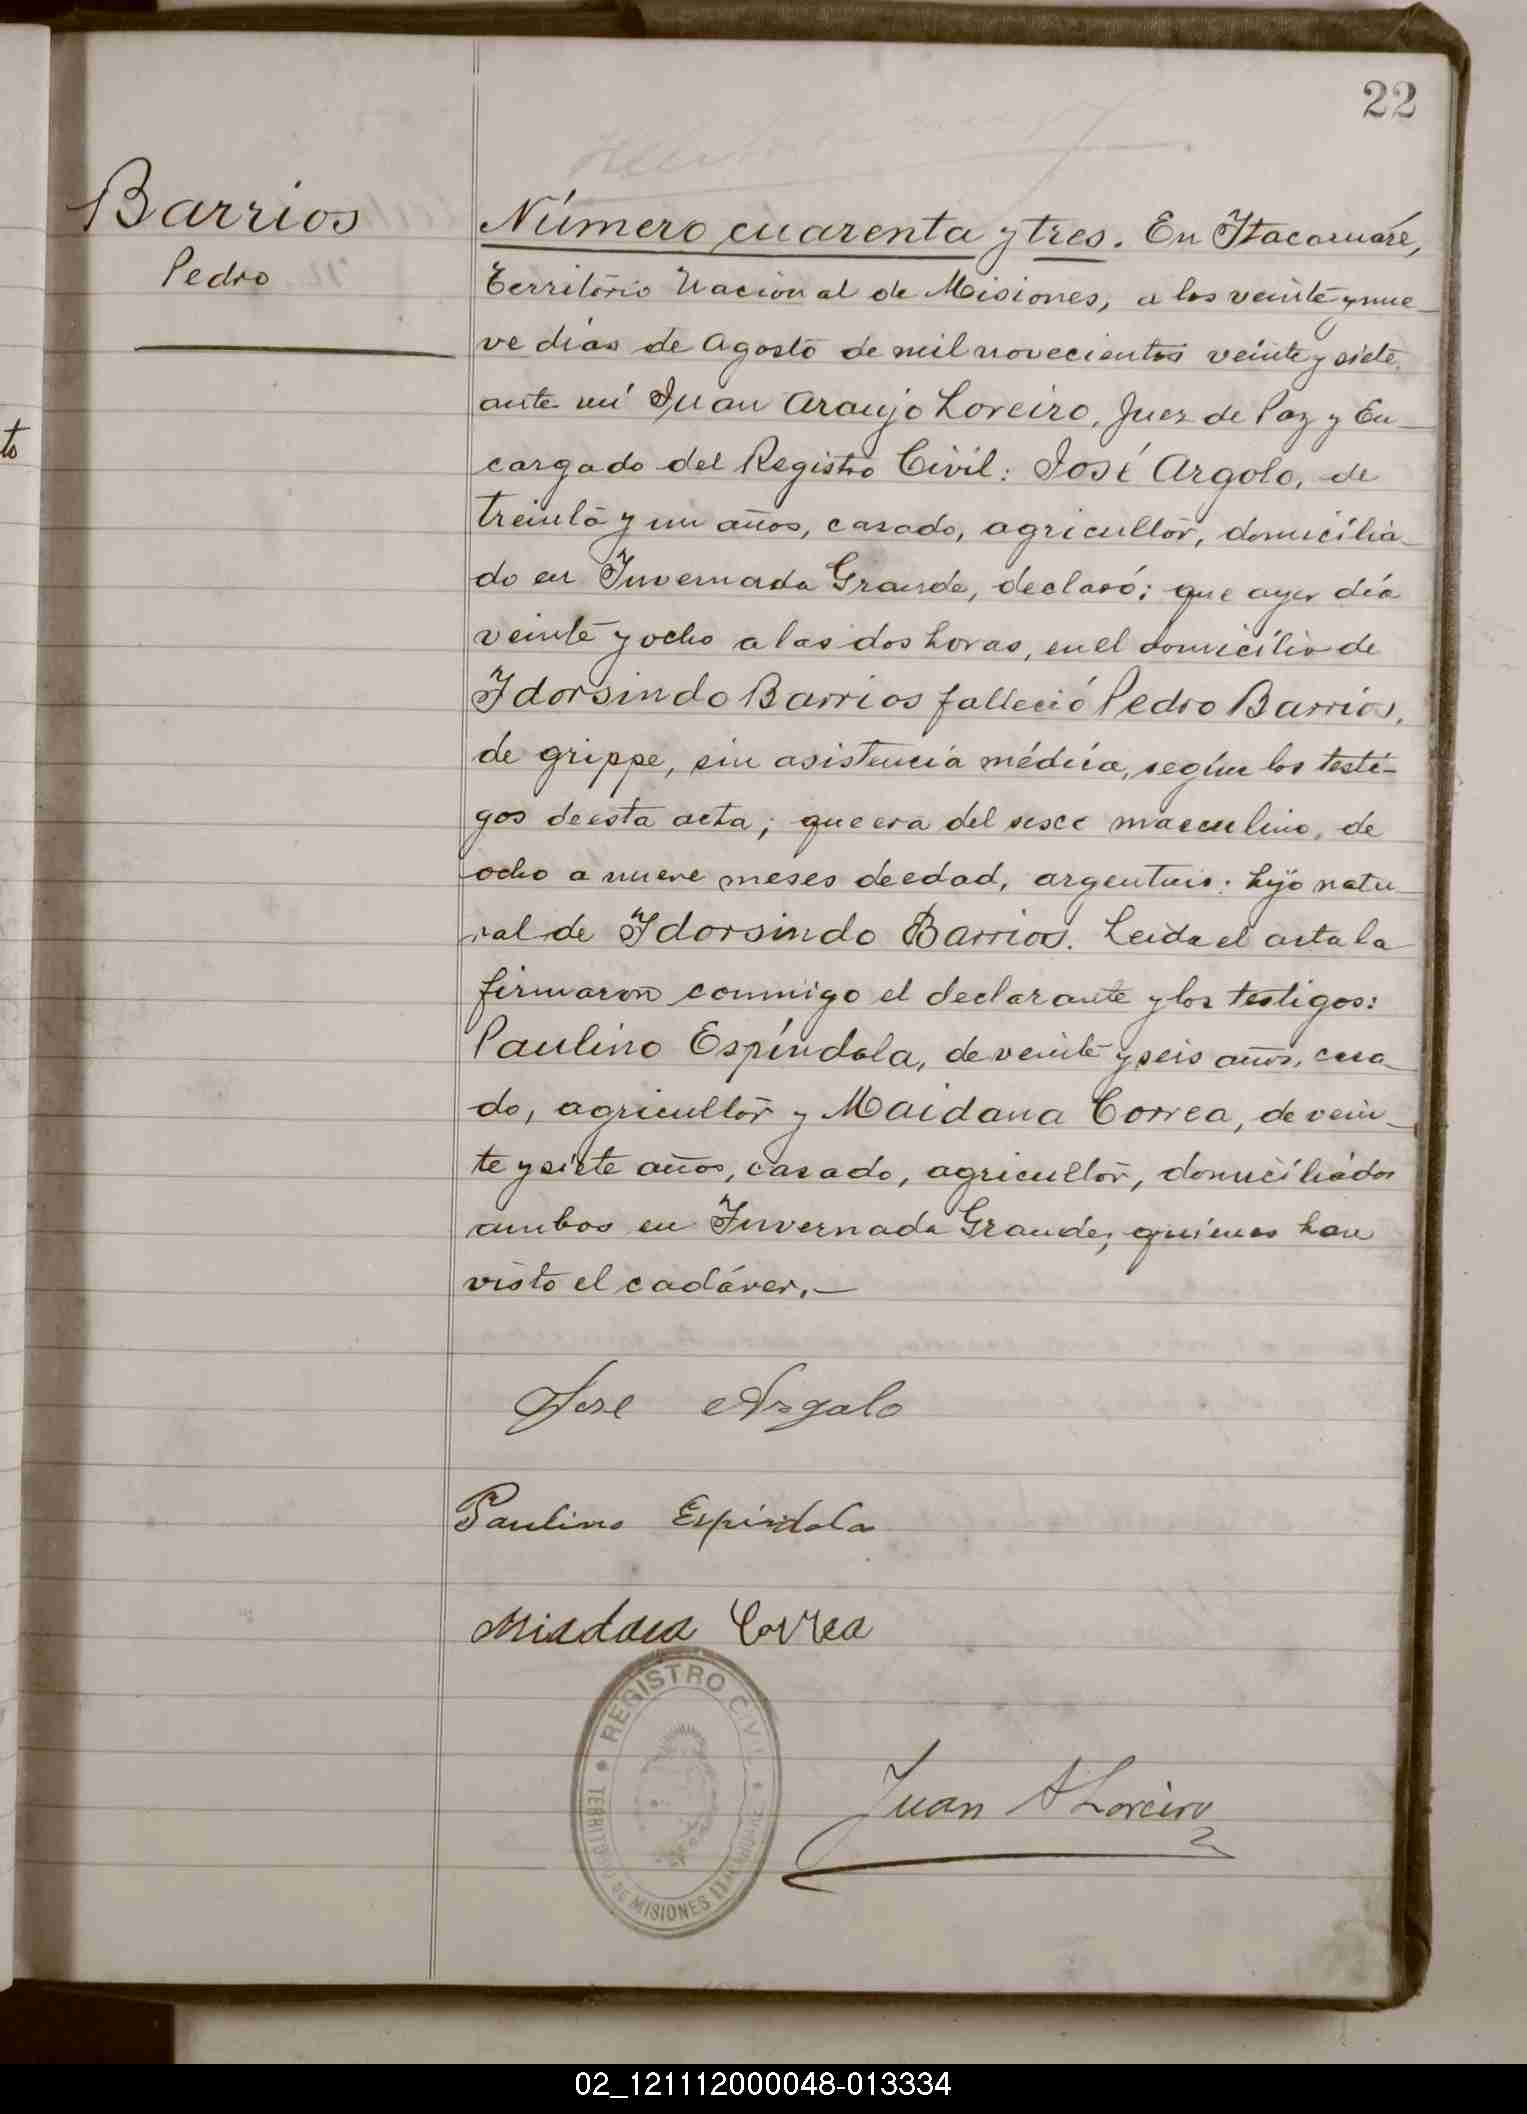 22
Barrios
Pedro
Número cuarenta y tres. En Itacaruaré,
Territorio Nacional de Misiones, a los veinte y nue-
ve dias de Agosto de mil novecientos veinte y siete,
ante mi Juan Araujo Loreiro, Juez de Paz y En-
cargado del Registro Civil: José Argolo, de
treinta y un años, casado, agricultor, domicilia-
do en Invernada Grande, declaró: que ayer día
veinte y ocho a las dos horas, en el domicilio de
Idorsindo Barrios falleció Pedro Barrios,
de grippe, sin asistencia médica, según los testi-
gos de esta acta; que era del sexo masculino, de
ocho a nueve meses de edad, argentino; hijo natu-
ral de Idorsindo Barrios. Leida el acta la
firmaron conmigo el declarante y los testigos:
Paulino Espíndola, de veinte y seis años, casa-
do, agricultor y Maidana Correa, de vein-
te y siete años, casado, agricultor, domiciliados
ambos en Invernada Grande; quienes han
visto el cadáver.-
to
Jose Argolo
Paulino Espindola
Miadana Correa
REGISTRO CIVIL
TERRITORIO DE MISIONES ITACARUARE
Juan A Loreiro
02_121112000048-013334